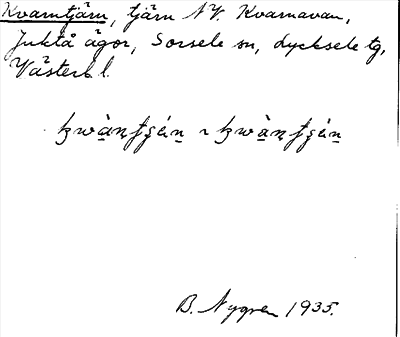 Kvarntjärn, tjärn NV. Kvarnavan,
Juktå ägor, Sorsele sn, Lycksele tg,
Västerb l.
B. Nygren 1935.